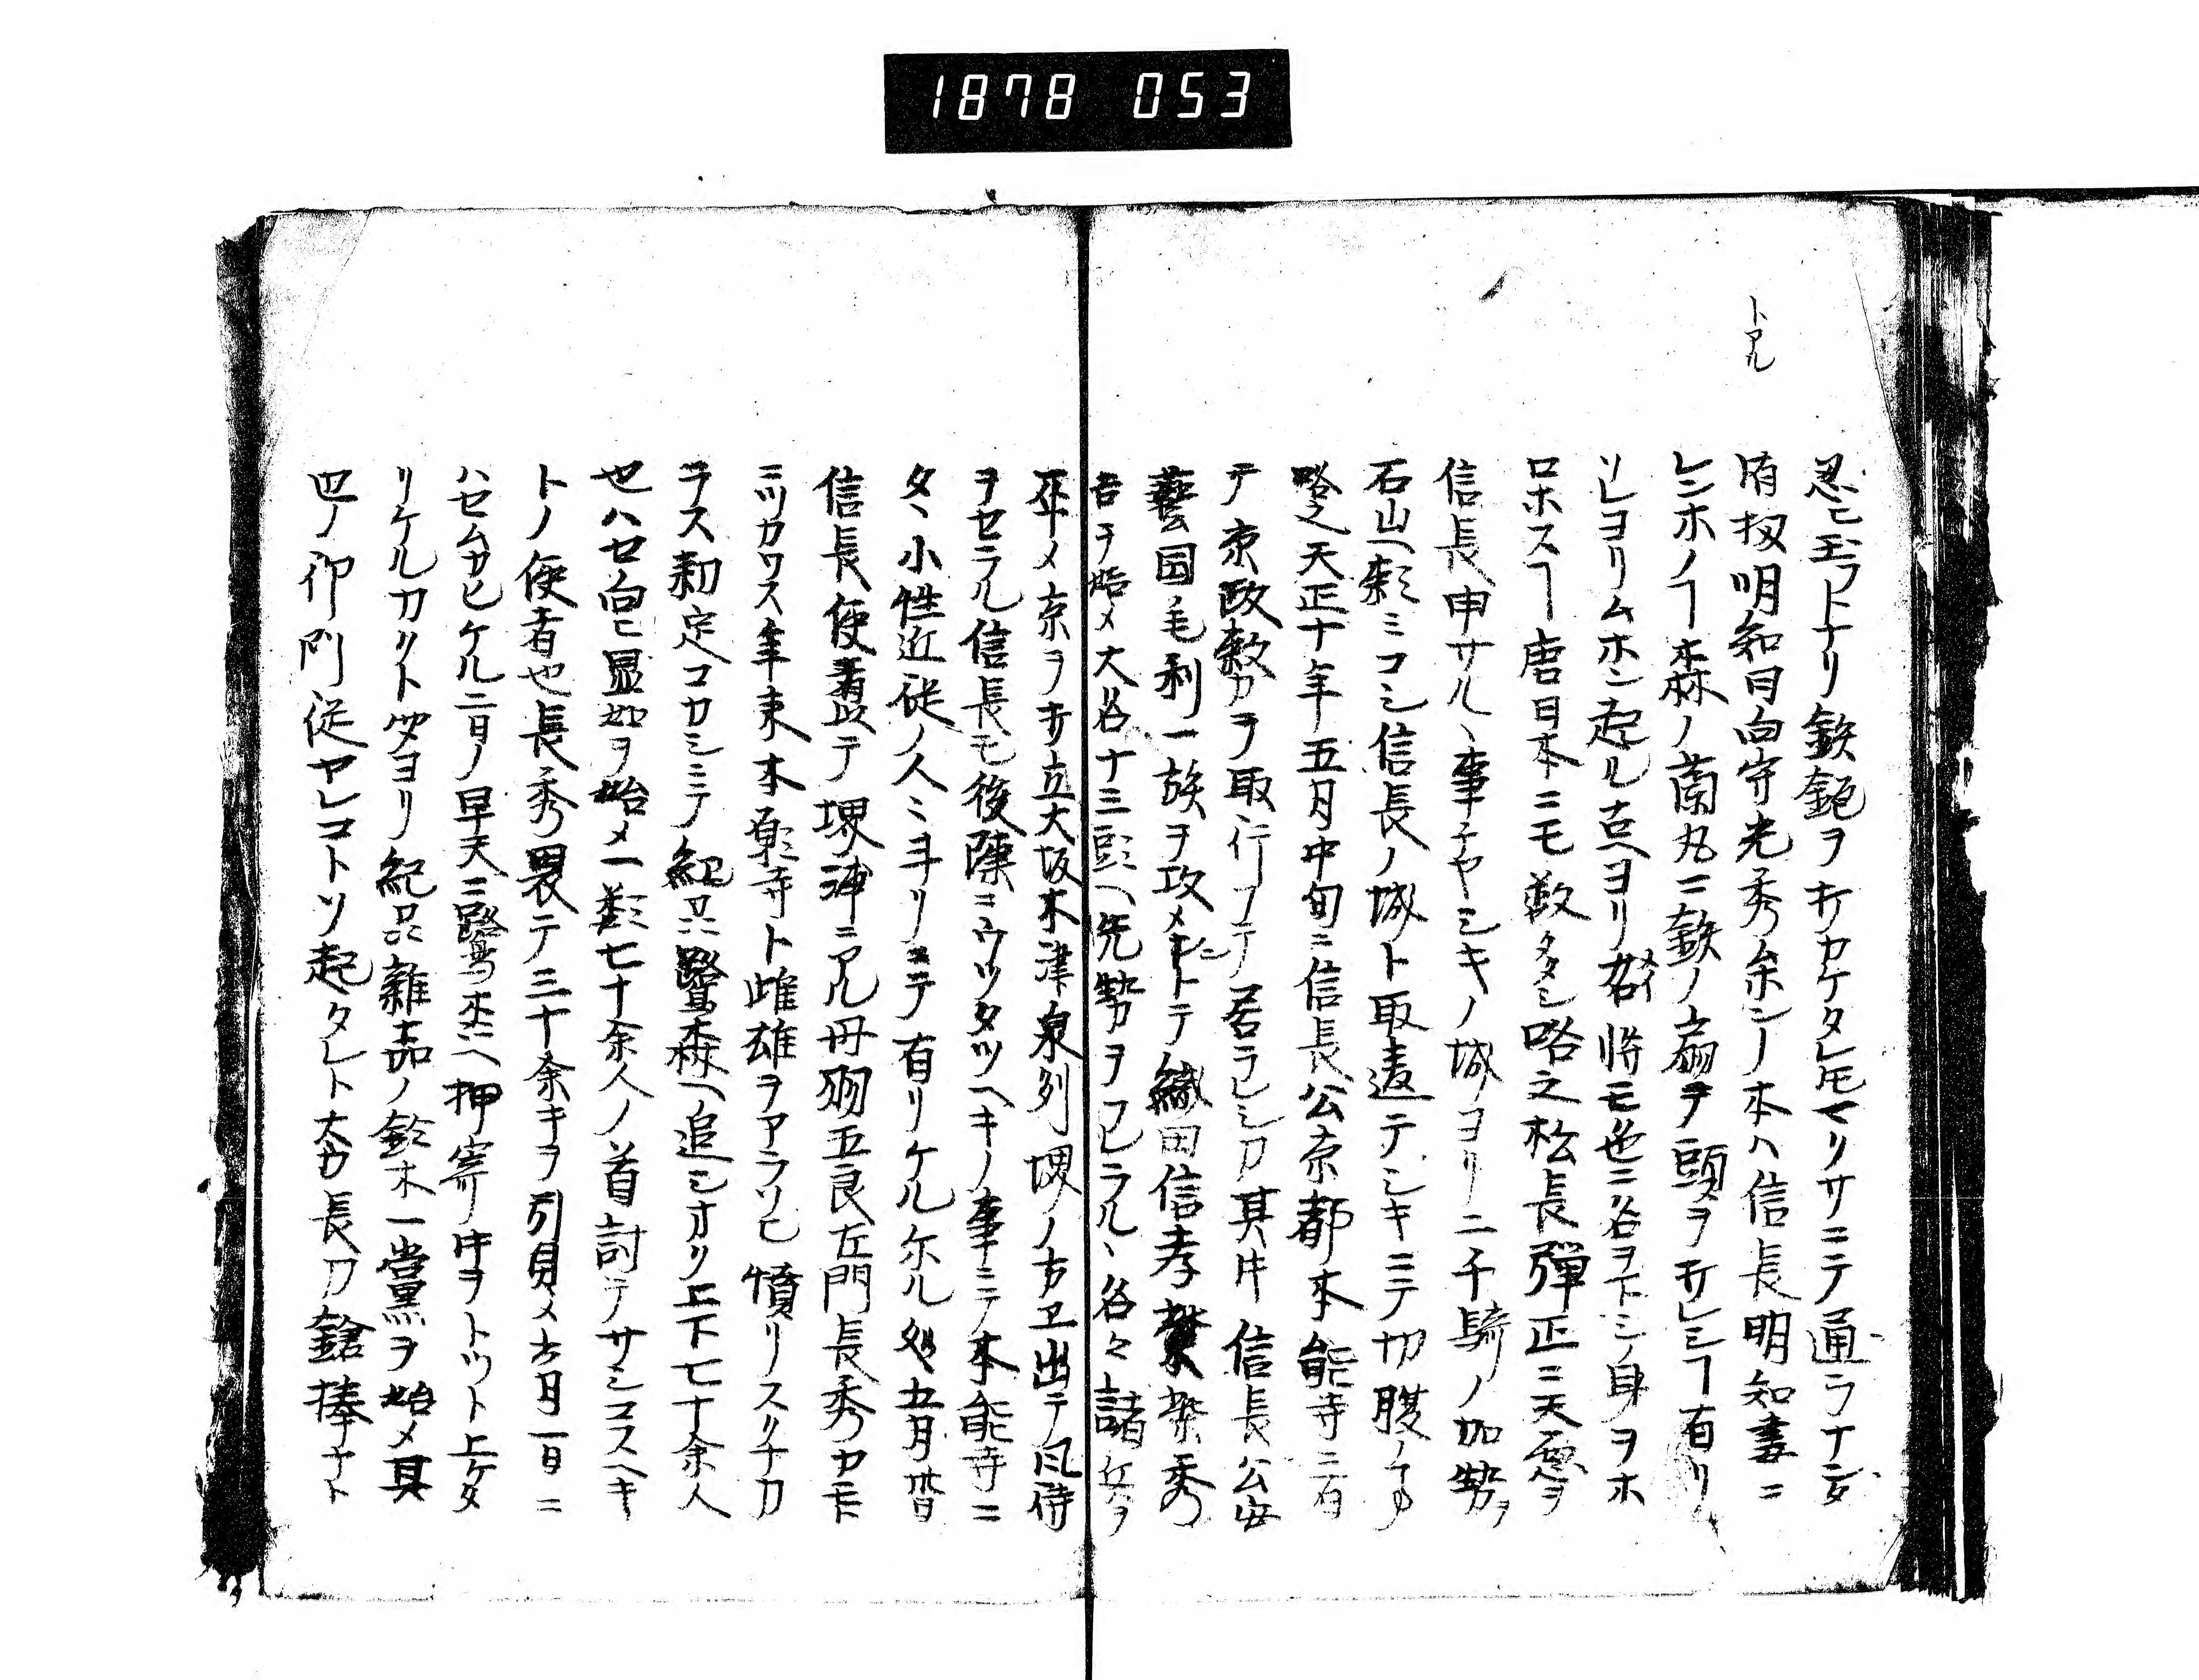 1878 053
トアル
忍ヒ玉フトナリ鉄砲ヲ打カケタレ圧マリサニテ通ラナンタ
有扨明知日向守光秀ムホンノ本ハ信長明知妻ニ
レンホノヿ森ノ蘭丸ニ鉄ノ扇ヲ頭ヲ打レシヿ有リ
ソレヨリムホン起ル古ヘヨリ 将モ色ニ名ヲ下シ身ヲホ
ロホスヿ唐日本ニモ数多シ略之松長弾正ニ天 ヲ
信長申サル、事チヤシキノ城ヨリ二千騎ノ加勢ヲ
石山ヘ頼ミコシ信長ノ城ト取違テシキニテ切腹ノ
略之天正十年五月中旬ニ信長公京都本能寺ニ有
テ京政敷カヲ取行フテ居ラレシカ其比信長公安
藝国毛利一族ヲ攻メントテ織田信孝 柴秀
吉ヲ始メ大名十三頭ヘ先勢ヲフレラル、各々諸兵ヲ
卒メ京ヲ打立大坂木津泉列堺ノ方エ出テ風待
ヲセラル信長モ後陳ニウツタツヘキノ事ニテ本能寺ニ
タヽ小性近従ノ人ミ斗リニテ有リケル尓ル処五月晦日
信長使者以テ堺浦ニアル丹羽五良左門長秀カ正
ミツカワス年来本願寺ト雌雄ヲアラソヒ憤リノスクナカ
ラス勅定コカシニテ紀州鷺森ヘ追シオリ上下七十余人
也ハセ向ヒ显如ヲ始メ一類七十余人ノ首討テサシコスヘキ
トノ使者也長秀畏テ三十余キヲ引具メ六月一日ニ
ハセムカヒケル二日ノ早天ニ鷺森ヘ押寄リ時ヲトツト上ケタ
リケルカクト聞ヨリ紀州雑賀ノ鈴木一党ヲ始メ其
四ノ御門徒ヤレコトソ起タレト太刀長刀鎗捧ナト